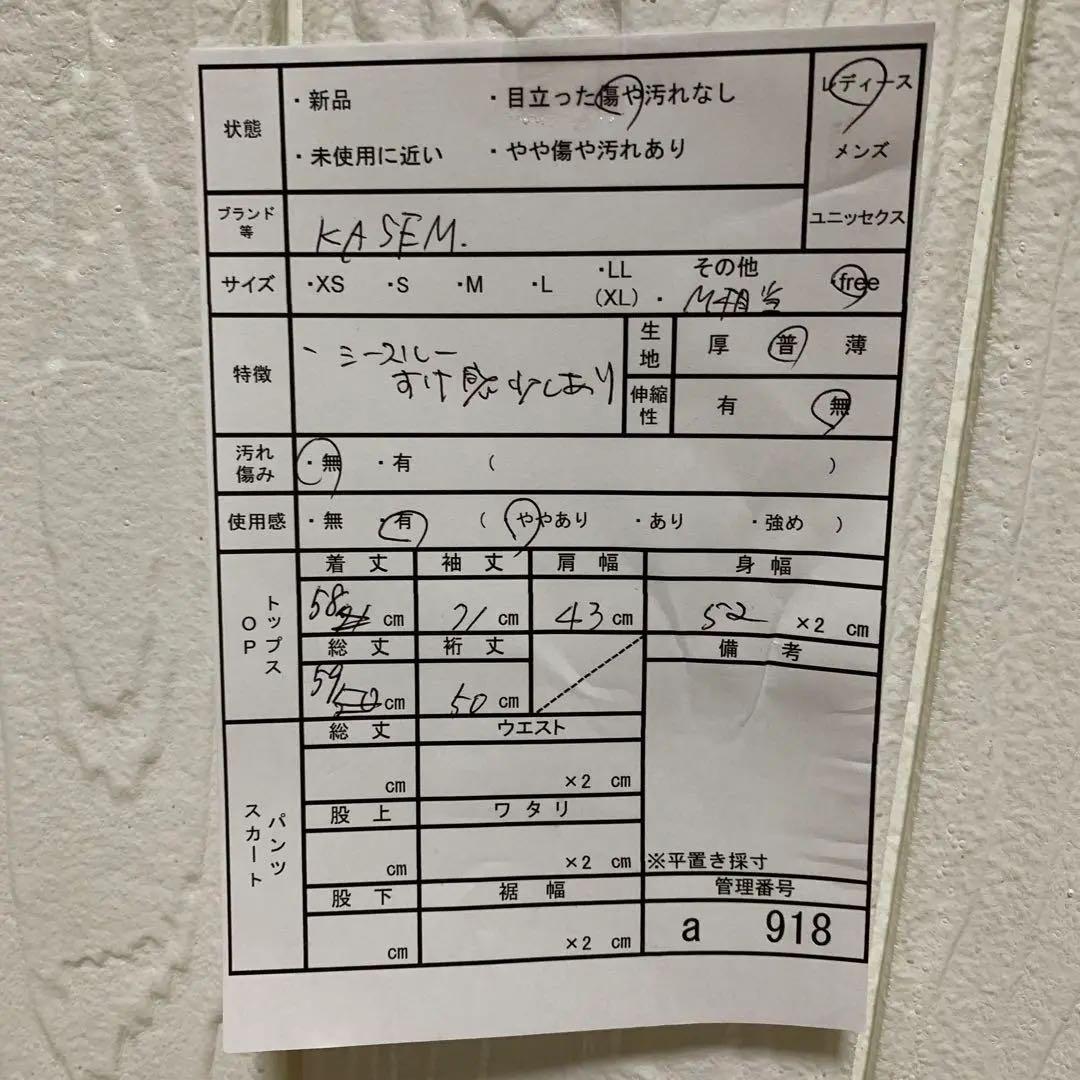 状態
・新品 ・目立った傷や汚れなし
・未使用に近い ・やや傷や汚れあり
レディース
メンズ
ユニッセクス
ブランド等
KASEM.
サイズ ・XS ・S ・M ・L ・LL (XL) ・ その他 M相当 ・free
特徴
・シースルー
すけ感少しあり
生地 厚 普 薄
伸縮性 有 無
汚れ傷み ・無 ・有 ( )
使用感 ・無 ・有 ( ややあり ・あり ・強め )
トップス OP
着丈 袖丈 肩幅 身幅
58 cm 21 cm 43 cm 52 ×2 cm
総丈 裄丈 備考
59 cm 50 cm
パンツ スカート
総丈 ウエスト
cm ×2 cm
股上 ワタリ
cm ×2 cm ※平置き採寸
股下 裾幅 管理番号
cm ×2 cm a 918